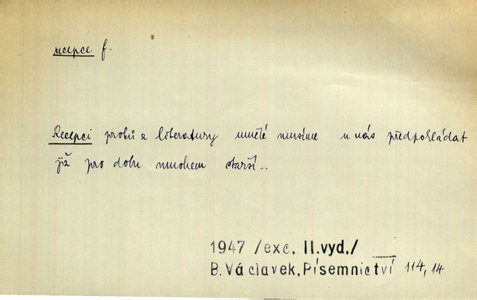 recepce f.
Recepci prvků z literatury umělé musíme u nás předpokládat
již pro dobu mnohem starší...
1947 /exc, II.vyd,/
B. Václavek, Písemnictví 114, 14